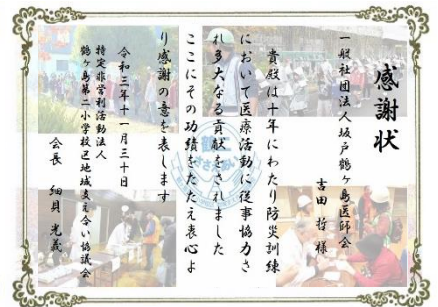 感謝状
一般社団法人坂戸鶴ヶ島医師会
吉田 哲 様
貴殿は十年にわたり防災訓練
において医療活動に従事協力さ
れ多大なる貢献をされました
ここにその功績をたたえ衷心よ
り感謝の意を表します
令和三年十一月三十日
特定非営利活動法人
鶴ヶ島第二小学校区地域支え合い協議会
会長 細貝 光義
鶴二
ささえあい